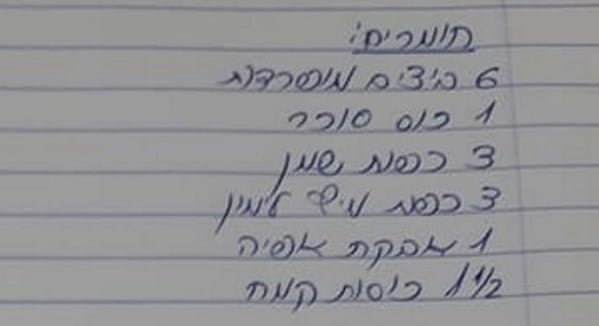 חומרים:
6 ביצים מופרדות
1 כוס סוכר
3 כפות שמן
3 כפות מיץ לימון
1 אבקת אפיה
1 1/2 כוסות קמח